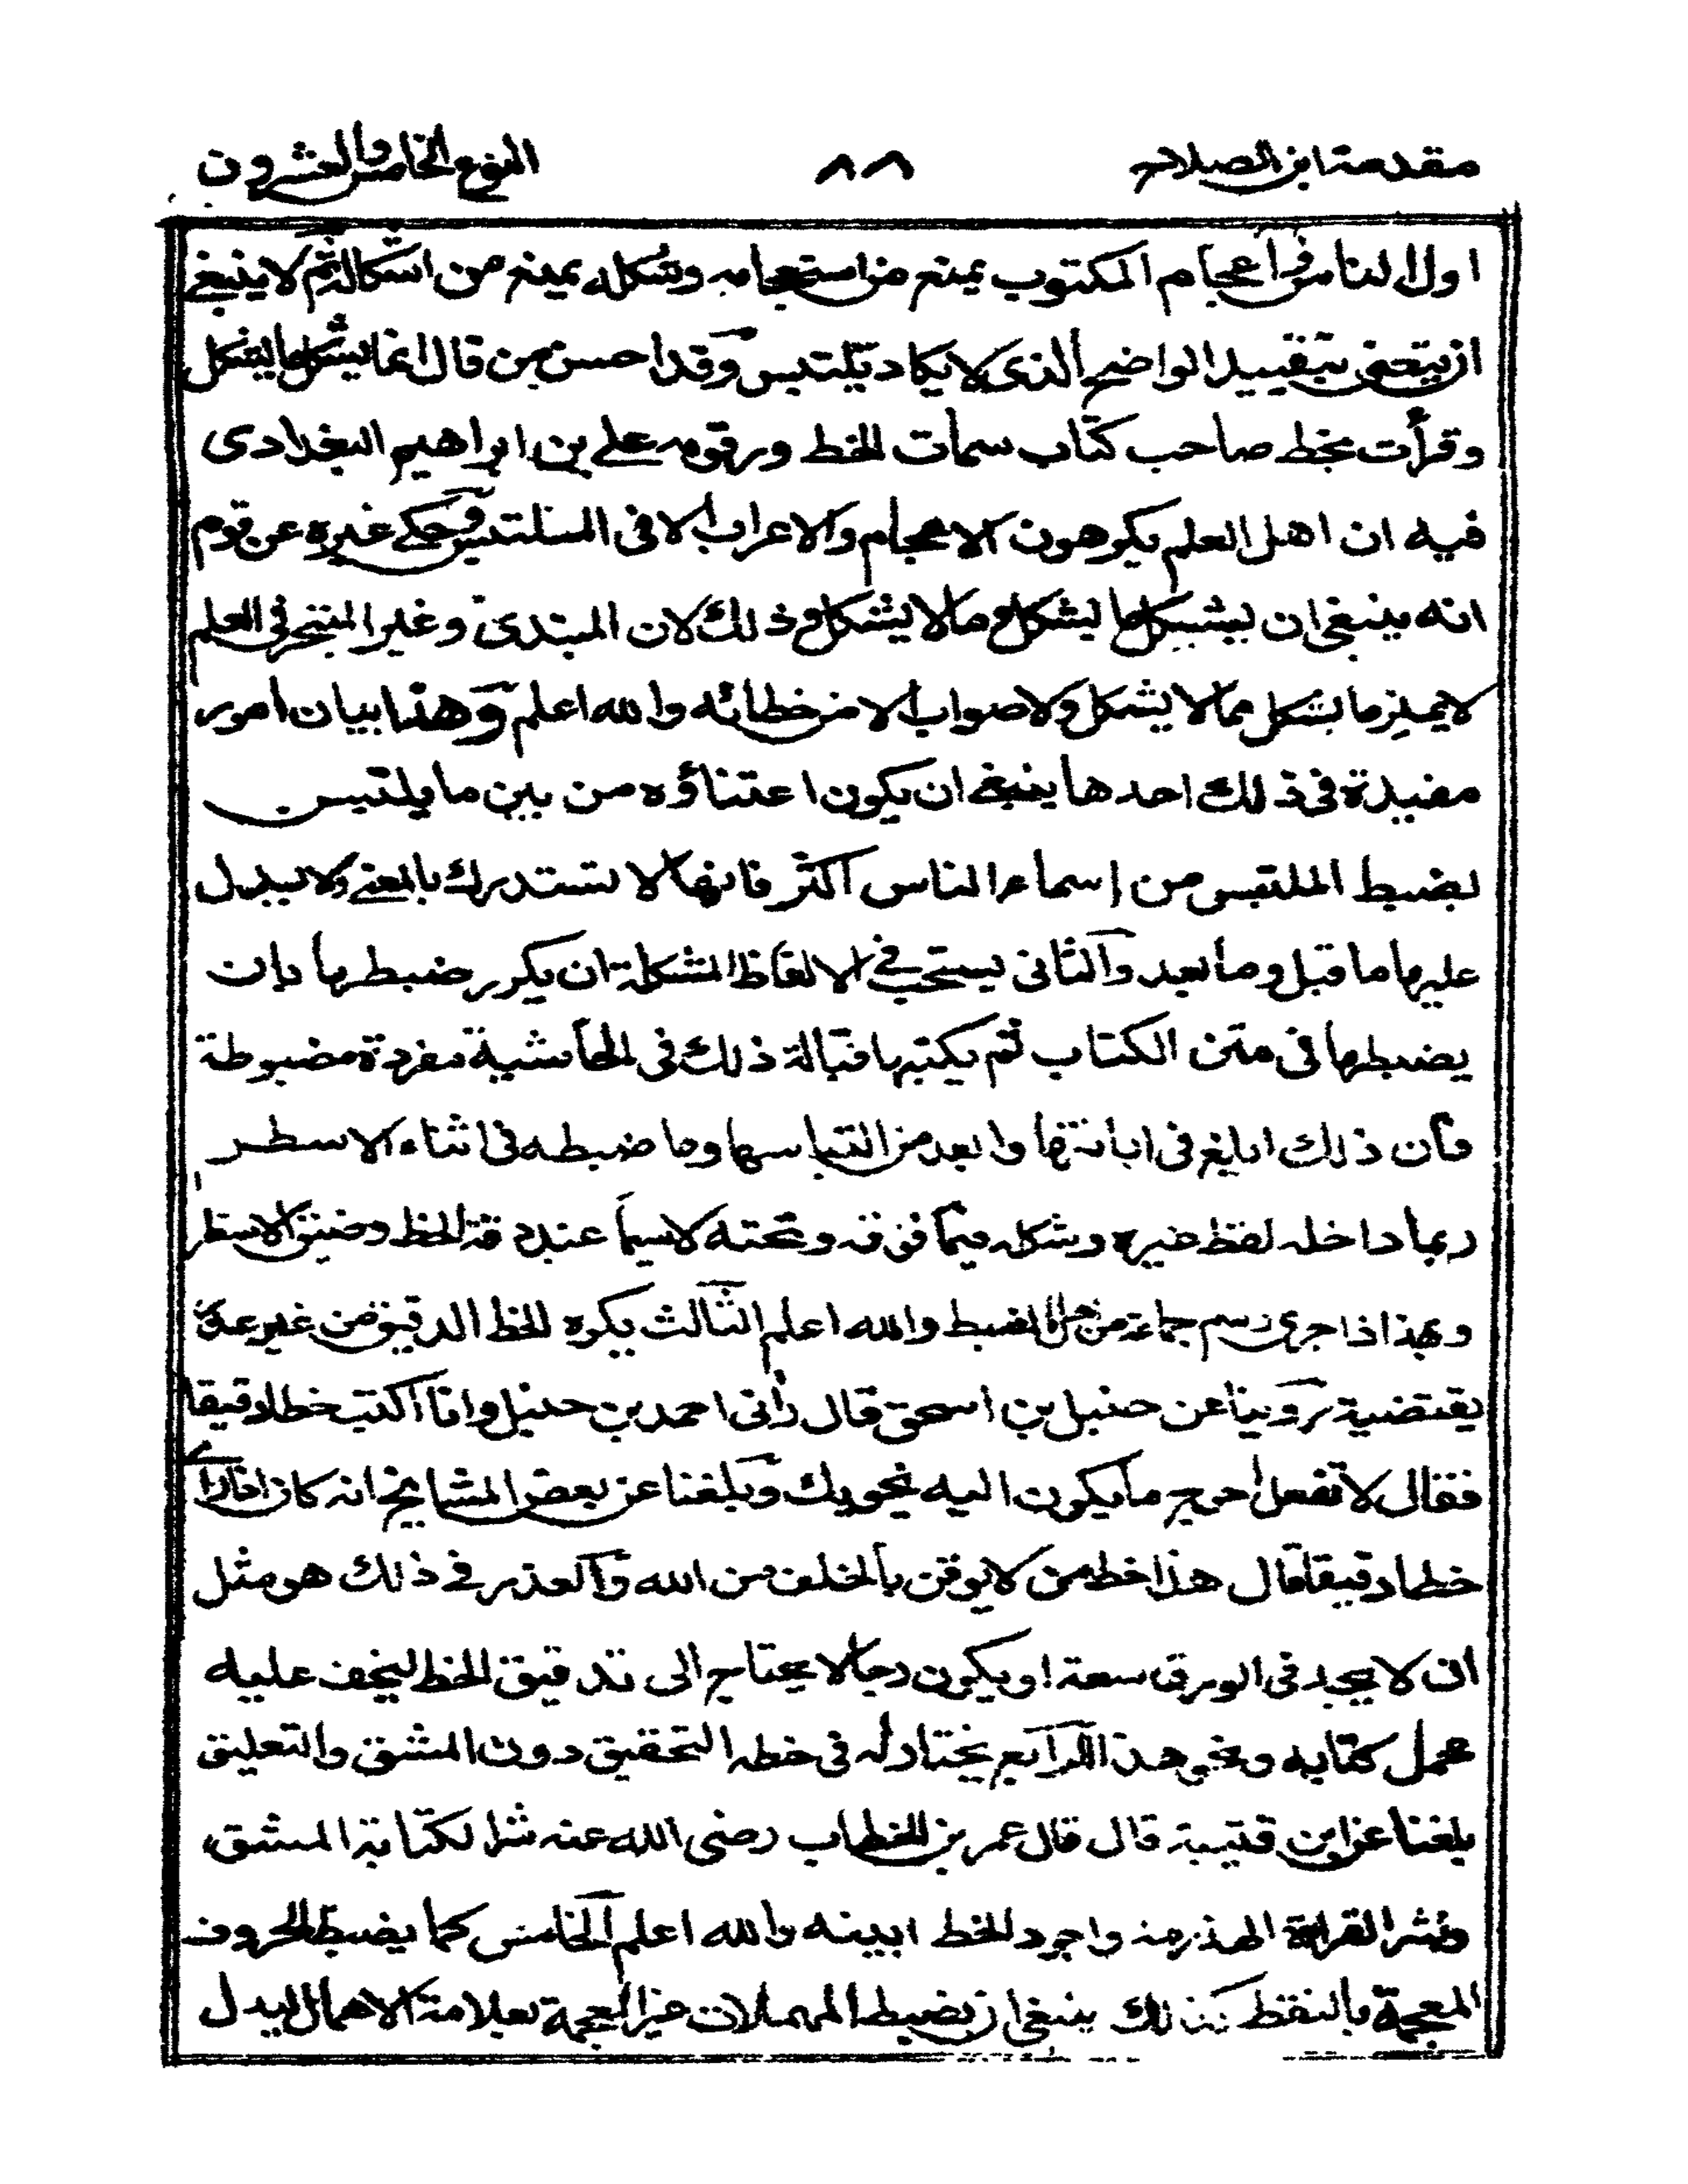 مقدمة ابن الصلاح ٨٨ النوع الخامس والعشرون
اول الناس واعجام المكتوب يمنع من استعجامه وشكله يمنع من اشكاله ثم لا ينبغي
ان يتعنى بتقييد الواضح الذى لا يكاد يلتبس وقد احسن من قال انما يشكل ما يشكل
وقرأت بخط صاحب كتاب سمات الخط ورقومه على بن ابراهيم البغدادى
فيه ان اهل العلم يكرهون الاعجام والاعراب الا فى الملتبس وحكى غيره عن قوم
انه ينبغى ان يشكل ما يشكل وما لا يشكل وذلك لان المبتدئ وغير المتبحر فى العلم
لا يميز ما يشكل مما لا يشكل ولا صواب الا من خطائه والله اعلم وهذا بيان امور
مفيدة فى ذلك احدها ينبغى ان يكون اعتناؤه من بين ما يلتبس
بضبط الملتبس من إسماء الناس اكثر فانها لا تستدرك بالمعنى ولا يستدل
عليها ما قبل وما بعد والثانى يستحب فى الالفاظ المشكلة ان يكرر ضبطها بان
يضبطها فى متن الكتاب ثم يكتبها قبالة ذلك فى الحاشية مفردة مضبوطة
فان ذلك ابلغ فى ابانتها وابعد من التباسها وما ضبطه فى اثناء الاسطر
ربما داخله لفظ غيره وشكله مما فوقه وتحته لا سيما عند دقة الخط وضيق الاسطر
وبهذا اذا جرى رسم جماعة من اهل الضبط والله اعلم الثالث يكره الخط الدقيق من غير عذر
يقتضيه روينا عن حنبل بن اسحق قال رأنى احمد بن حنبل وانا اكتب خطا دقيقا
فقال لا تفعل احوج ما يكون اليه يخونك وبلغنا عن بعض المشايخ انه كان اذا رأى
خطا دقيقا قال هذا خط من لا يوقن بالخلف من الله والعذر فى ذلك هو مثل
ان لا يجد فى الورق سعة او يكون رجالا يحتاج الى تدقيق الخط ليخف عليه
محمل كتابه ونحو هذا الرابع يختار له فى خطه التحقيق دون المشق والتعليق
بلغنا عن ابن قتيبة قال قال عمر بن الخطاب رضى الله عنه شر الكتابة المشق
وشر القراءة الهذرمة واجود الخط ابينه والله اعلم الخامس كما يضبط الحروف
المعجمة بالنقط كذلك ينبغى ان يضبط المهملات غير المعجمة بعلامة الاهمال ليدل